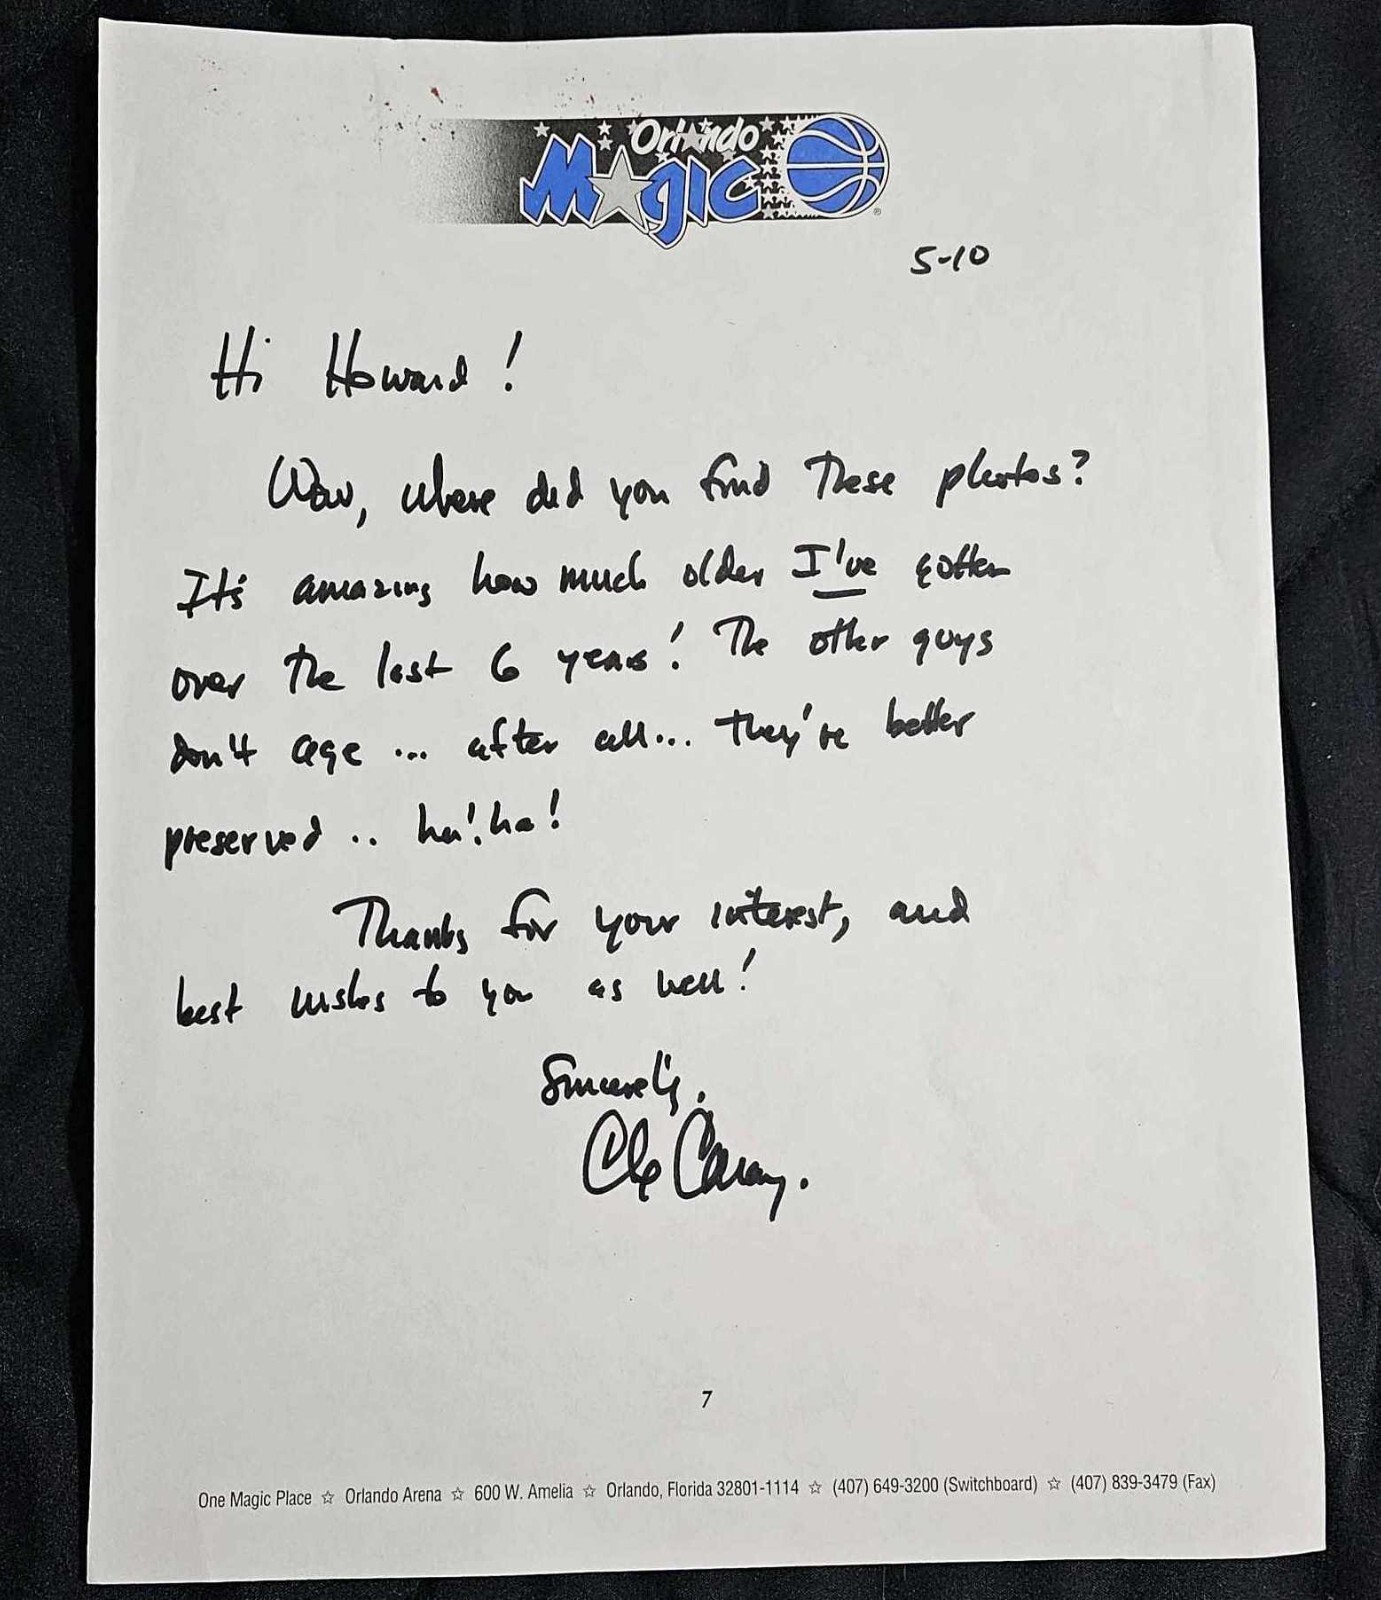 Orlando
Magic
®
5-10
Hi Howard!
Wow, where did you find these photos?
It's amazing how much older I've gotten
over the last 6 years! The other guys
don't age ... after all... they're better
preserved .. ha! ha!
Thanks for your interest, and
best wishes to you as well!
Sincerely,
7
One Magic Place ☆ Orlando Arena ☆ 600 W. Amelia ☆ Orlando, Florida 32801-1114 ☆ (407) 649-3200 (Switchboard) ☆ (407) 839-3479 (Fax)